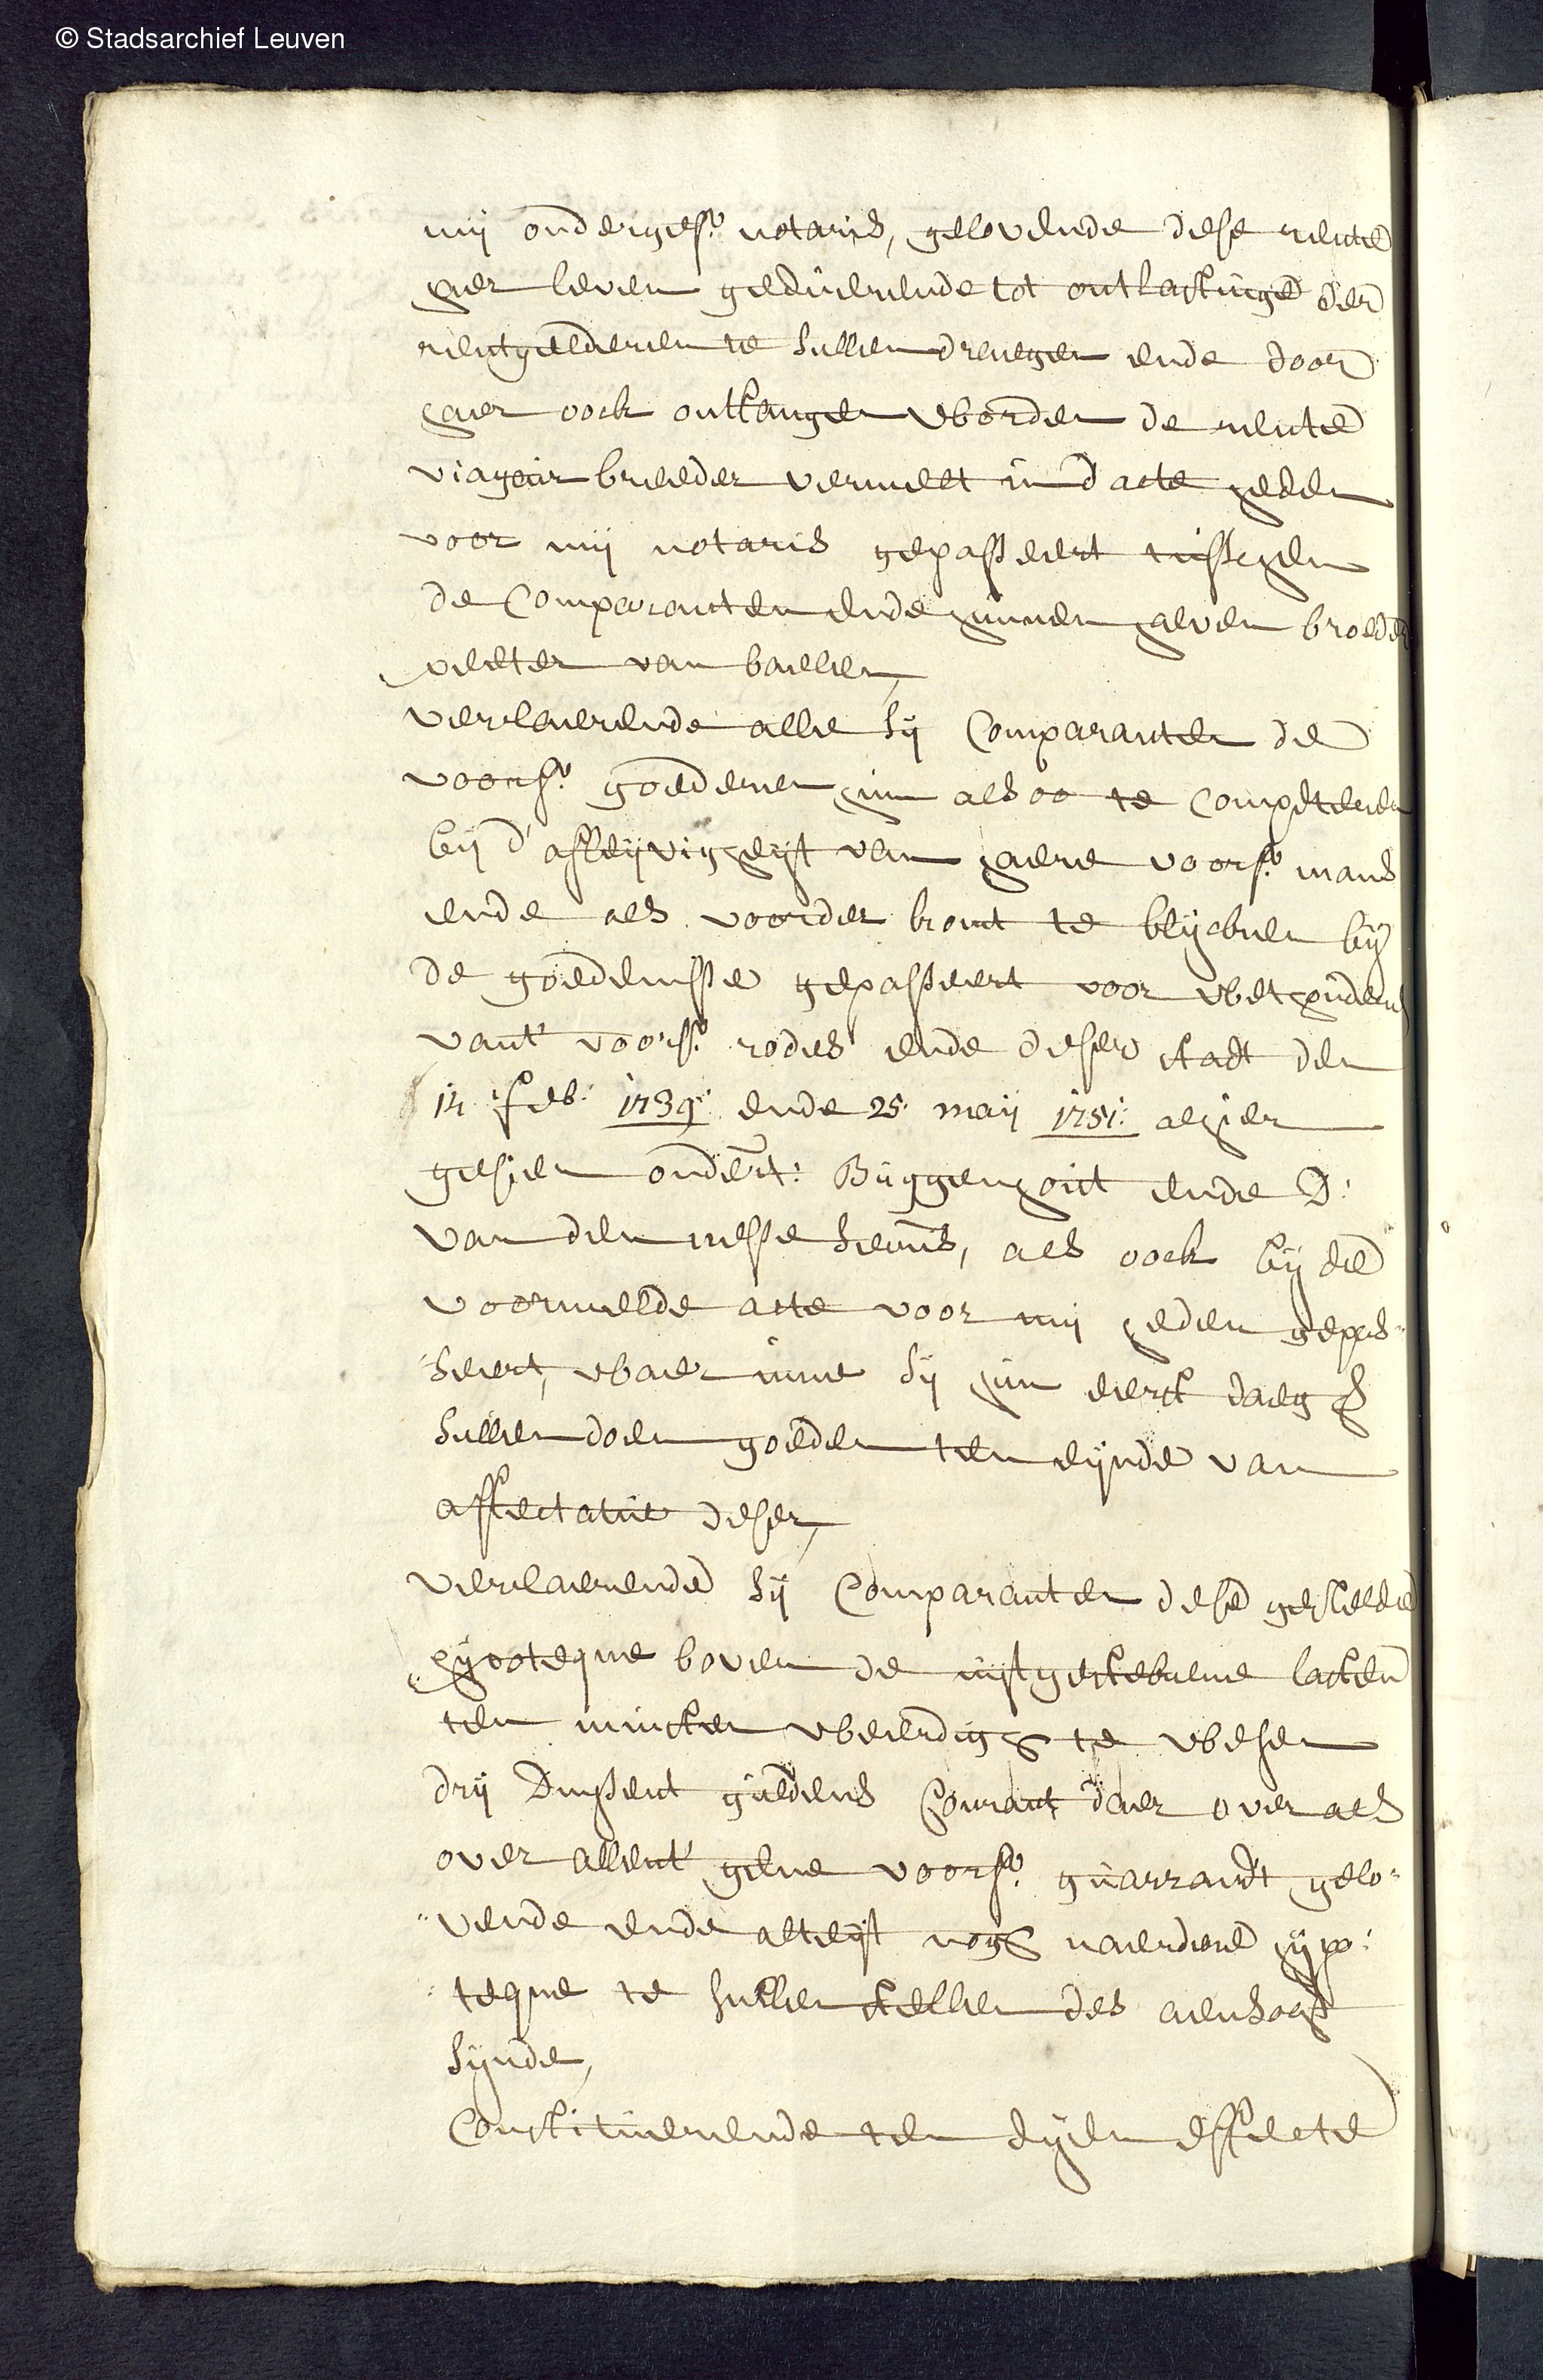 © Stadsarchief Leuven
mij ondergesr. notaris, gelovende dese rente
haer leven geduerende tot ontlastinge der
rentgelderen te sullen draegen ende door
haer oock ontfangen worden de rente
viagair breeder vermelt in d'acte heden
voor mij notaris gepasseert tusschen
de Comparanten ende hunnen halven broeder
peeter van baelen,
verclaerende alle sij Comparanten de
voorsr. goederen hun alsoo te competeren
bij d'aflijvicheijt van haere voorsr. mans
ende als voorder bront te blijcken bij
de goedenisse gepasseert voor wethouderen
vant' voorsr. rodes ende deser stadt den
14 feb: 1739: ende 25 meij 1751: alhier
gesien ondert: Buggenhout ende D:
van den nesse secris, als oock bij de
voormelde acte voor mij heden gepas-
seert, waer inne sij hun eerst daeghs
sullen doen goeden ten eijnde van
affectatie deser,
verclaerende sij Comparanten dese gestelde
hijpoteque boven de uijtgesteken lasten
ten minsten weerdigh te wesen
drij Duijsent guldens Courant daer over als
over allent' gene voorsr. guarrandt gelo-
vende ende alteijt nogh naerdere hijpo-
teque te sullen stellen des aensocht
sijnde,
Constituerende ten dijen effecte